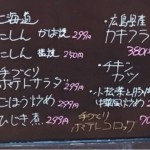 北海道
にしん かば焼 299円
にしん 塩焼 250円
手づくり
ポテトサラダ 299円
ごぼう炒め 299円
ひじき煮 290円
・広島県産
カキフラ
380円
・チキン
カツ
・小松菜と豚肉
中華風炒め
手づくり
ポテトコロッケ 90